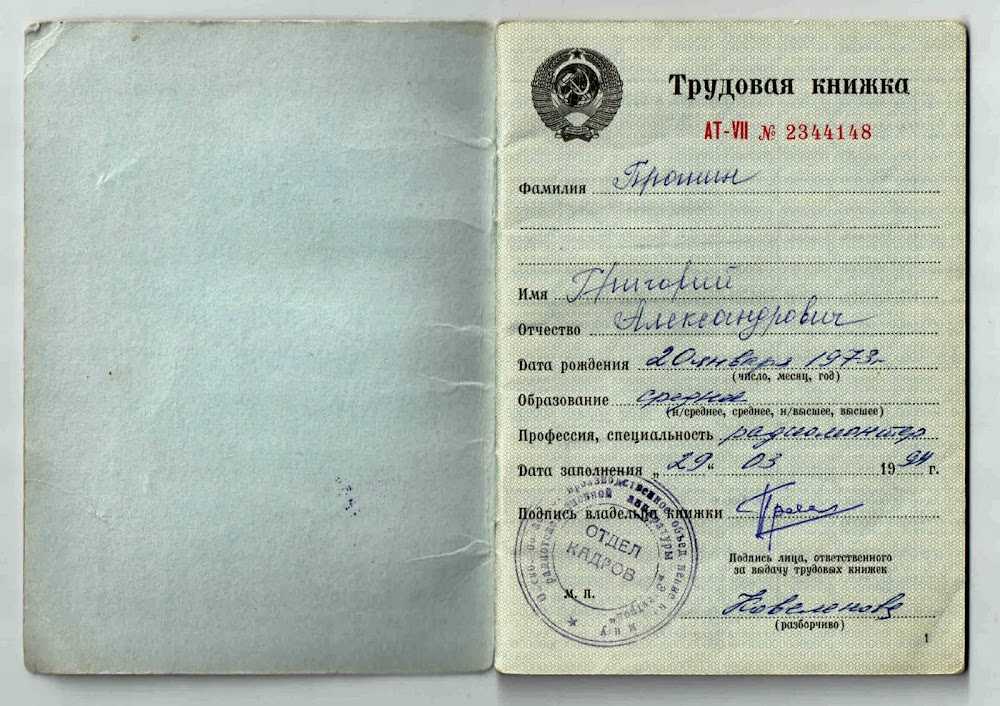 Трудовая книжка
АТ-VII № 2344148
Фамилия Прошин
Имя Григорий
Отчество Александрович
Дата рождения 20 января 1973г
(число, месяц, год)
Образование среднее
(н/среднее, среднее, н/высшее, высшее)
Профессия, специальность радиомонтер
Дата заполнения „29“ 03 1994 г.
Подпись владельца книжки
ОТДЕЛ
КАДРОВ
Подпись лица, ответственного
за выдачу трудовых книжек
М. П.
(разборчиво)
1